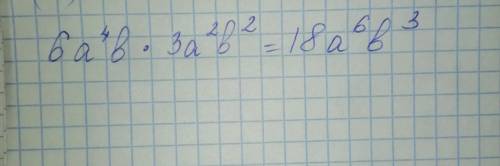 6a⁴b · 3a²b² = 18a⁶b³